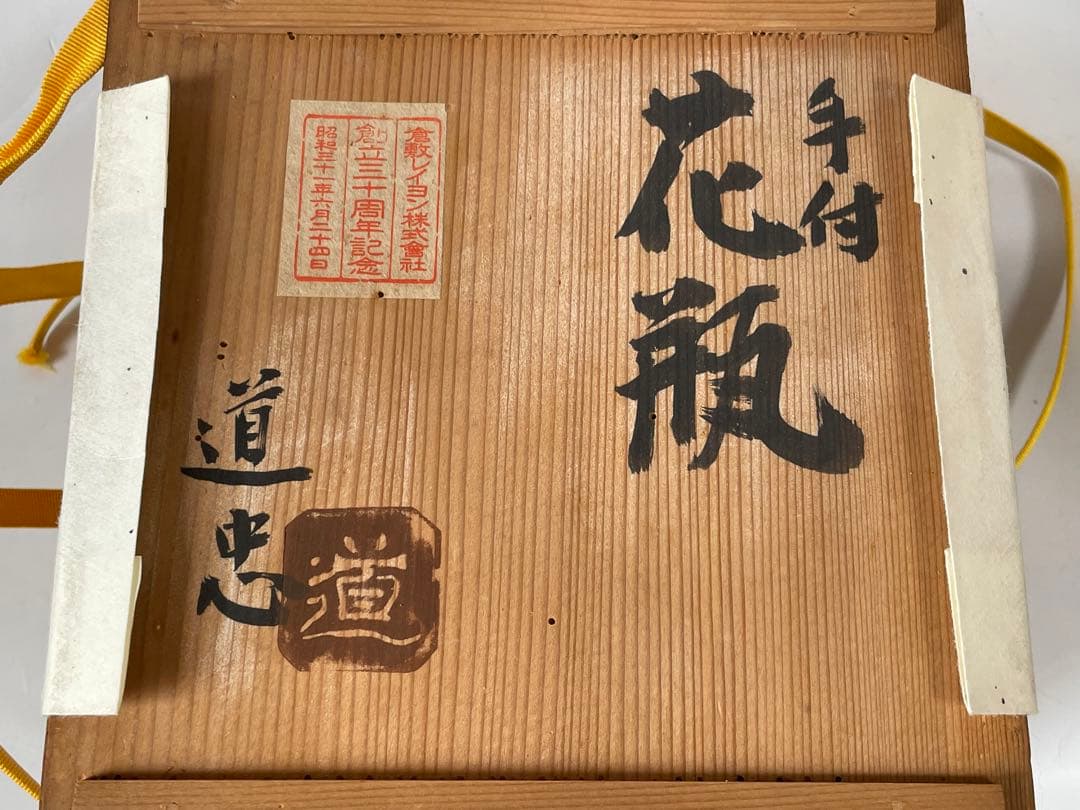 手付
花瓶
倉敷レイヨン株式會社
創立三十周年記念
昭和三十一年六月二十四日
道忠
道